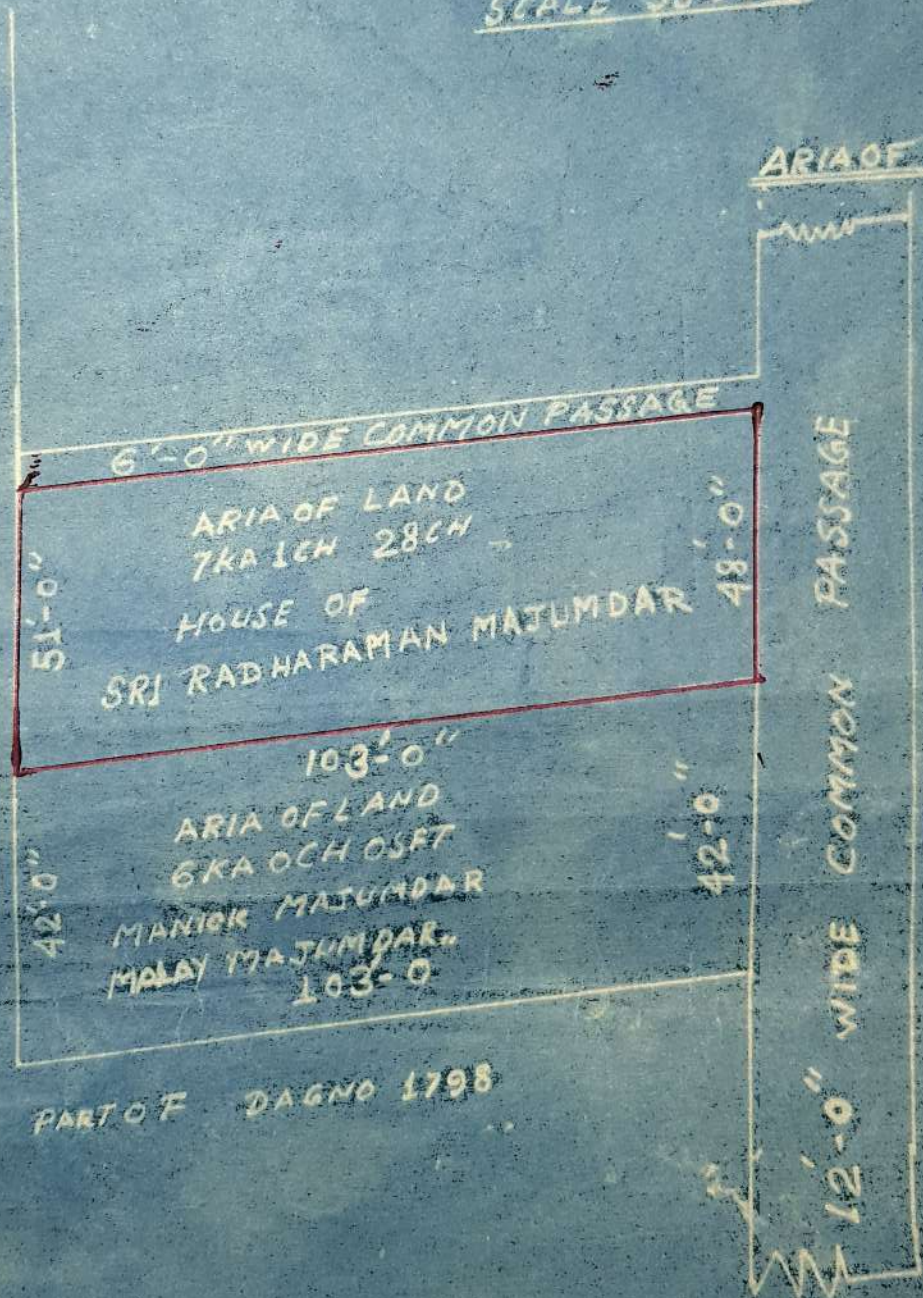 SCALE
ARIA OF
6'-0" WIDE COMMON PASSAGE
ARIA OF LAND
7KA 1CH 28CH
HOUSE OF
SRI RADHARAMAN MAJUMDAR
51'-0"
48'-0"
103'-0"
ARIA OF LAND
6KA 0CH 0SFT
MANICK MAJUMDAR
MALAY MAJUMDAR
103'-0"
42'-0"
42'-0"
PART OF DAGNO 1798
12'-0" WIDE COMMON PASSAGE